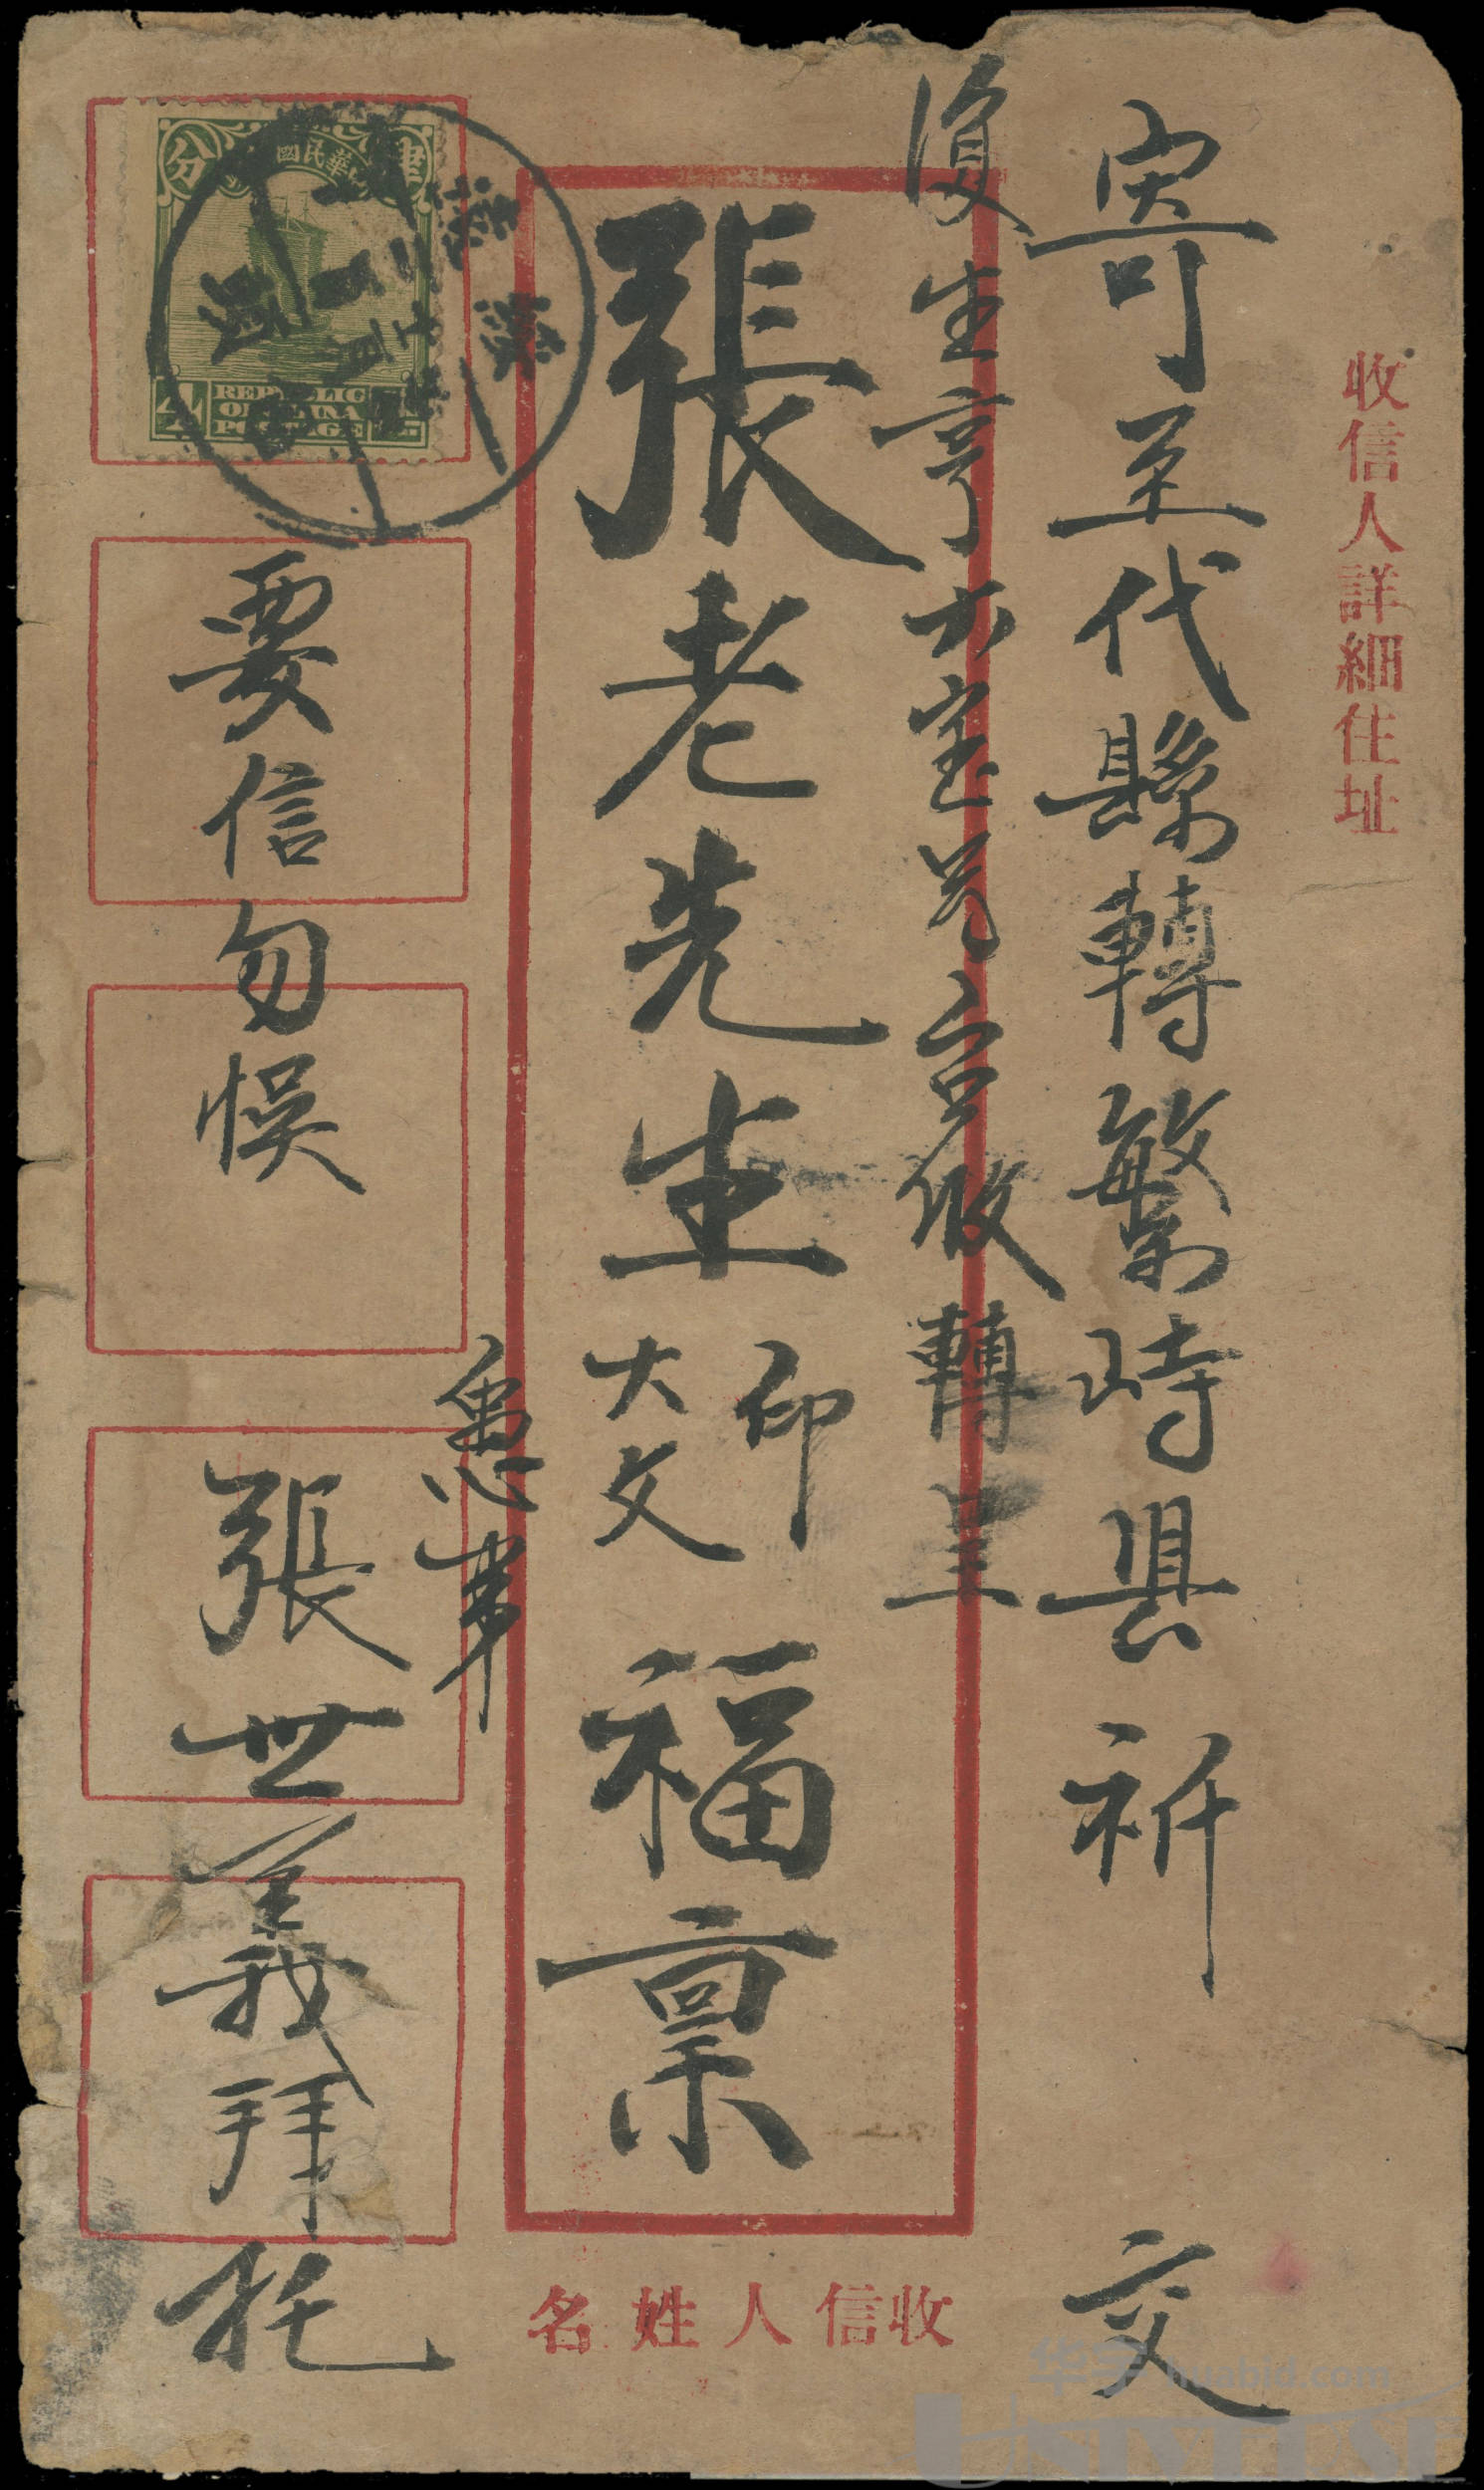 收信人詳細住址
寄至代縣轉繁峙县祈 交
復生亨大宝号台收轉呈
張老先生 印大文 福禀
急事
要信勿悞
張世義拜托
收信人姓名
分 國民華 肆
4
REPUBLIC
OF CHINA
POSTAGE
华宇 huabid.com